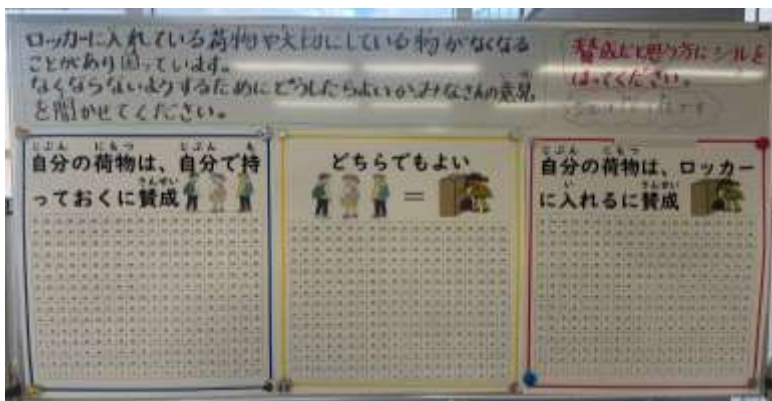 ロッカーに入れている荷物や大切にしている物がなくなる
ことがあり困っています。
なくならないようするためにどうしたらよいかみなさんの意見
を聞かせてください。
賛成だと思う方にシールを
はってください。
自分の荷物は、自分で持
っておくに賛成
どちらでもよい
=
自分の荷物は、ロッカー
に入れるに賛成